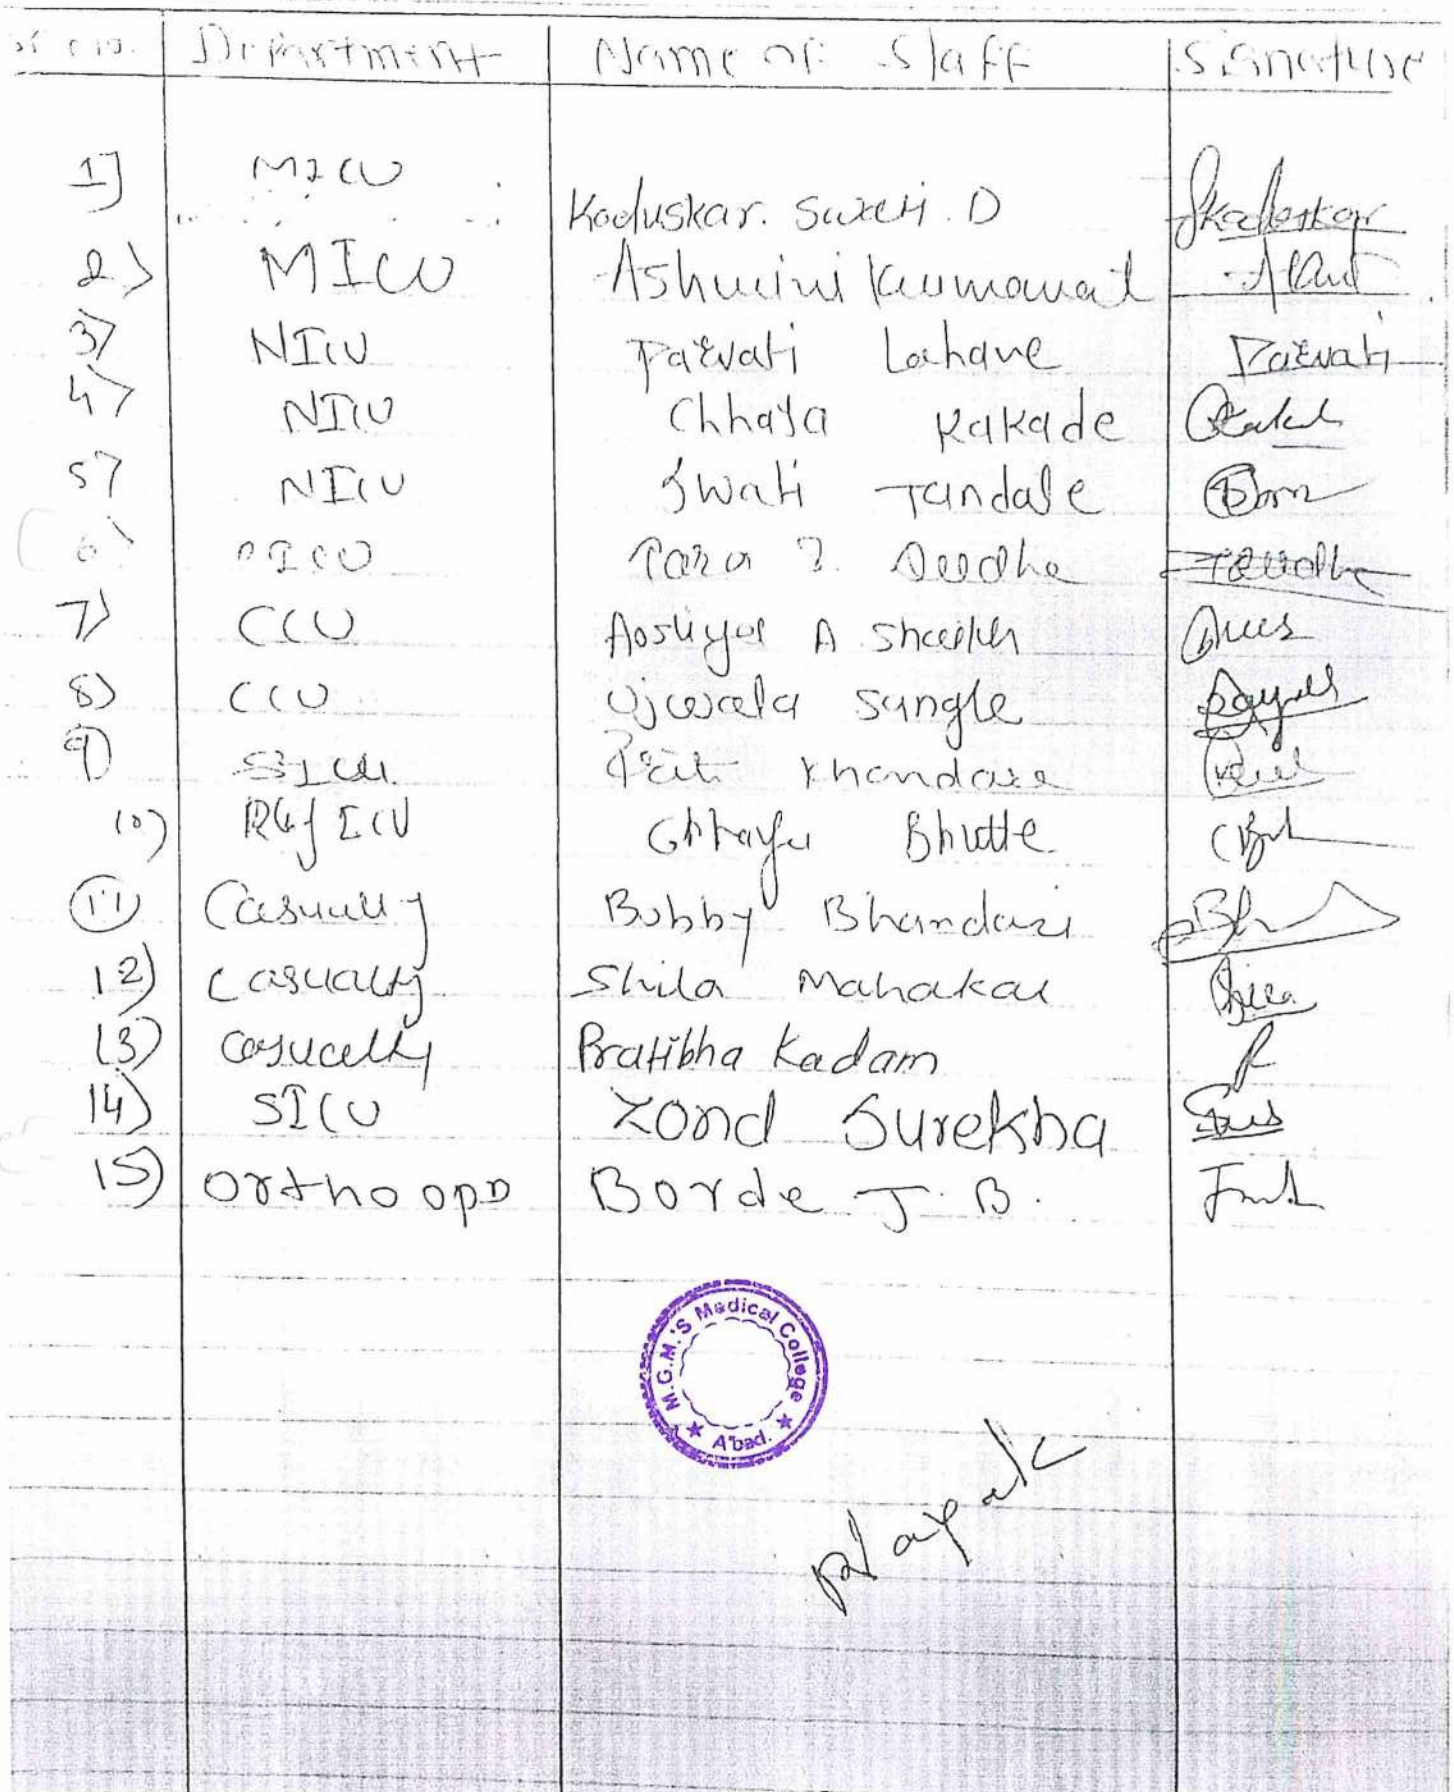 Sr no. Department Name of Staff Signature
1] MICU Kaduskar. Swati. D Skaduskar
2) MICU Ashwini Kumawat
3) NICU Parvati Lahane Parvati
4) NICU Chhaya Kakade
5) NICU Swati Tandale
6) Deodhe
7) CCU A Shaikh
8) CCU Ujwala Sangle
9) SICU Khandare
10) ICU Bhutte
11) Casualty Bobby Bhandari
12) Casualty Shila Mahakal
13) Casualty Pratibha Kadam
14) SICU Zond Surekha
15) Ortho OPD Borde J. B.
M.G.M.'S Medical College
★ A'bad. ★